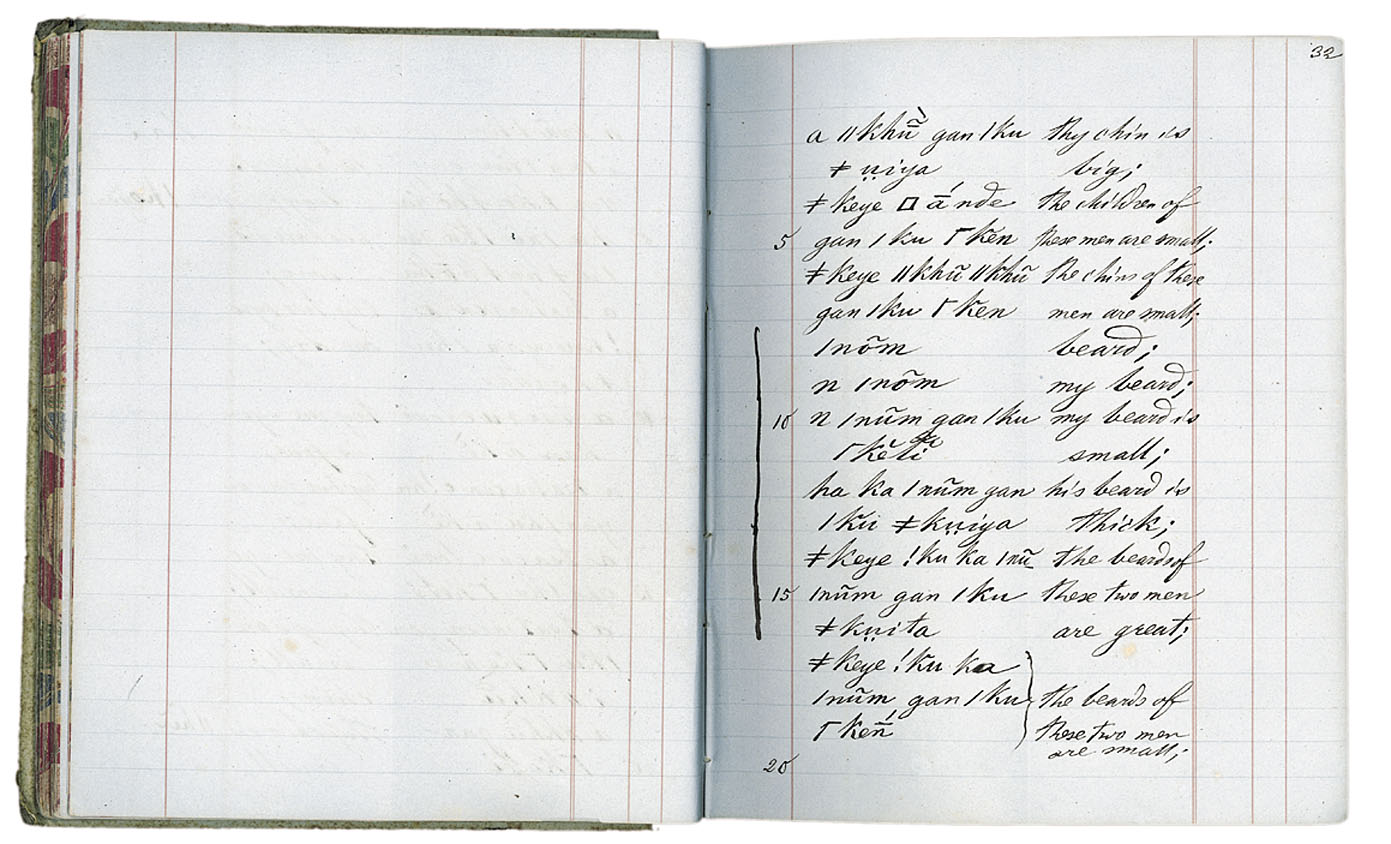 32
a ǁkhũ̄̀ gan ǀku thy chin is
ǂ ṳiya big;
ǂ keye □ ā́ nde the children of
5 gan ǀ ku ꓩ ken these men are small;
ǂ keye ǁkhũ ǁkhũ the chins of these
gan ǀku ꓩ ken men are small;
ǀnõm beard;
n ǀnõm my beard;
10 n ǀnũm gan ǀku my beard is
small;
ha ka ǀnũm gan his beard is
ǀku ǂ kṳiya thick;
ǂ keye !ku ka ǀnũ the beards of
15 ǀnũm gan ǀku these two men
ǂ kṳita are great;
ǂ keye !ku ka
ǀnũm gan ǀku the beards of
ꓩ ken̄́ these two men
are small;
20